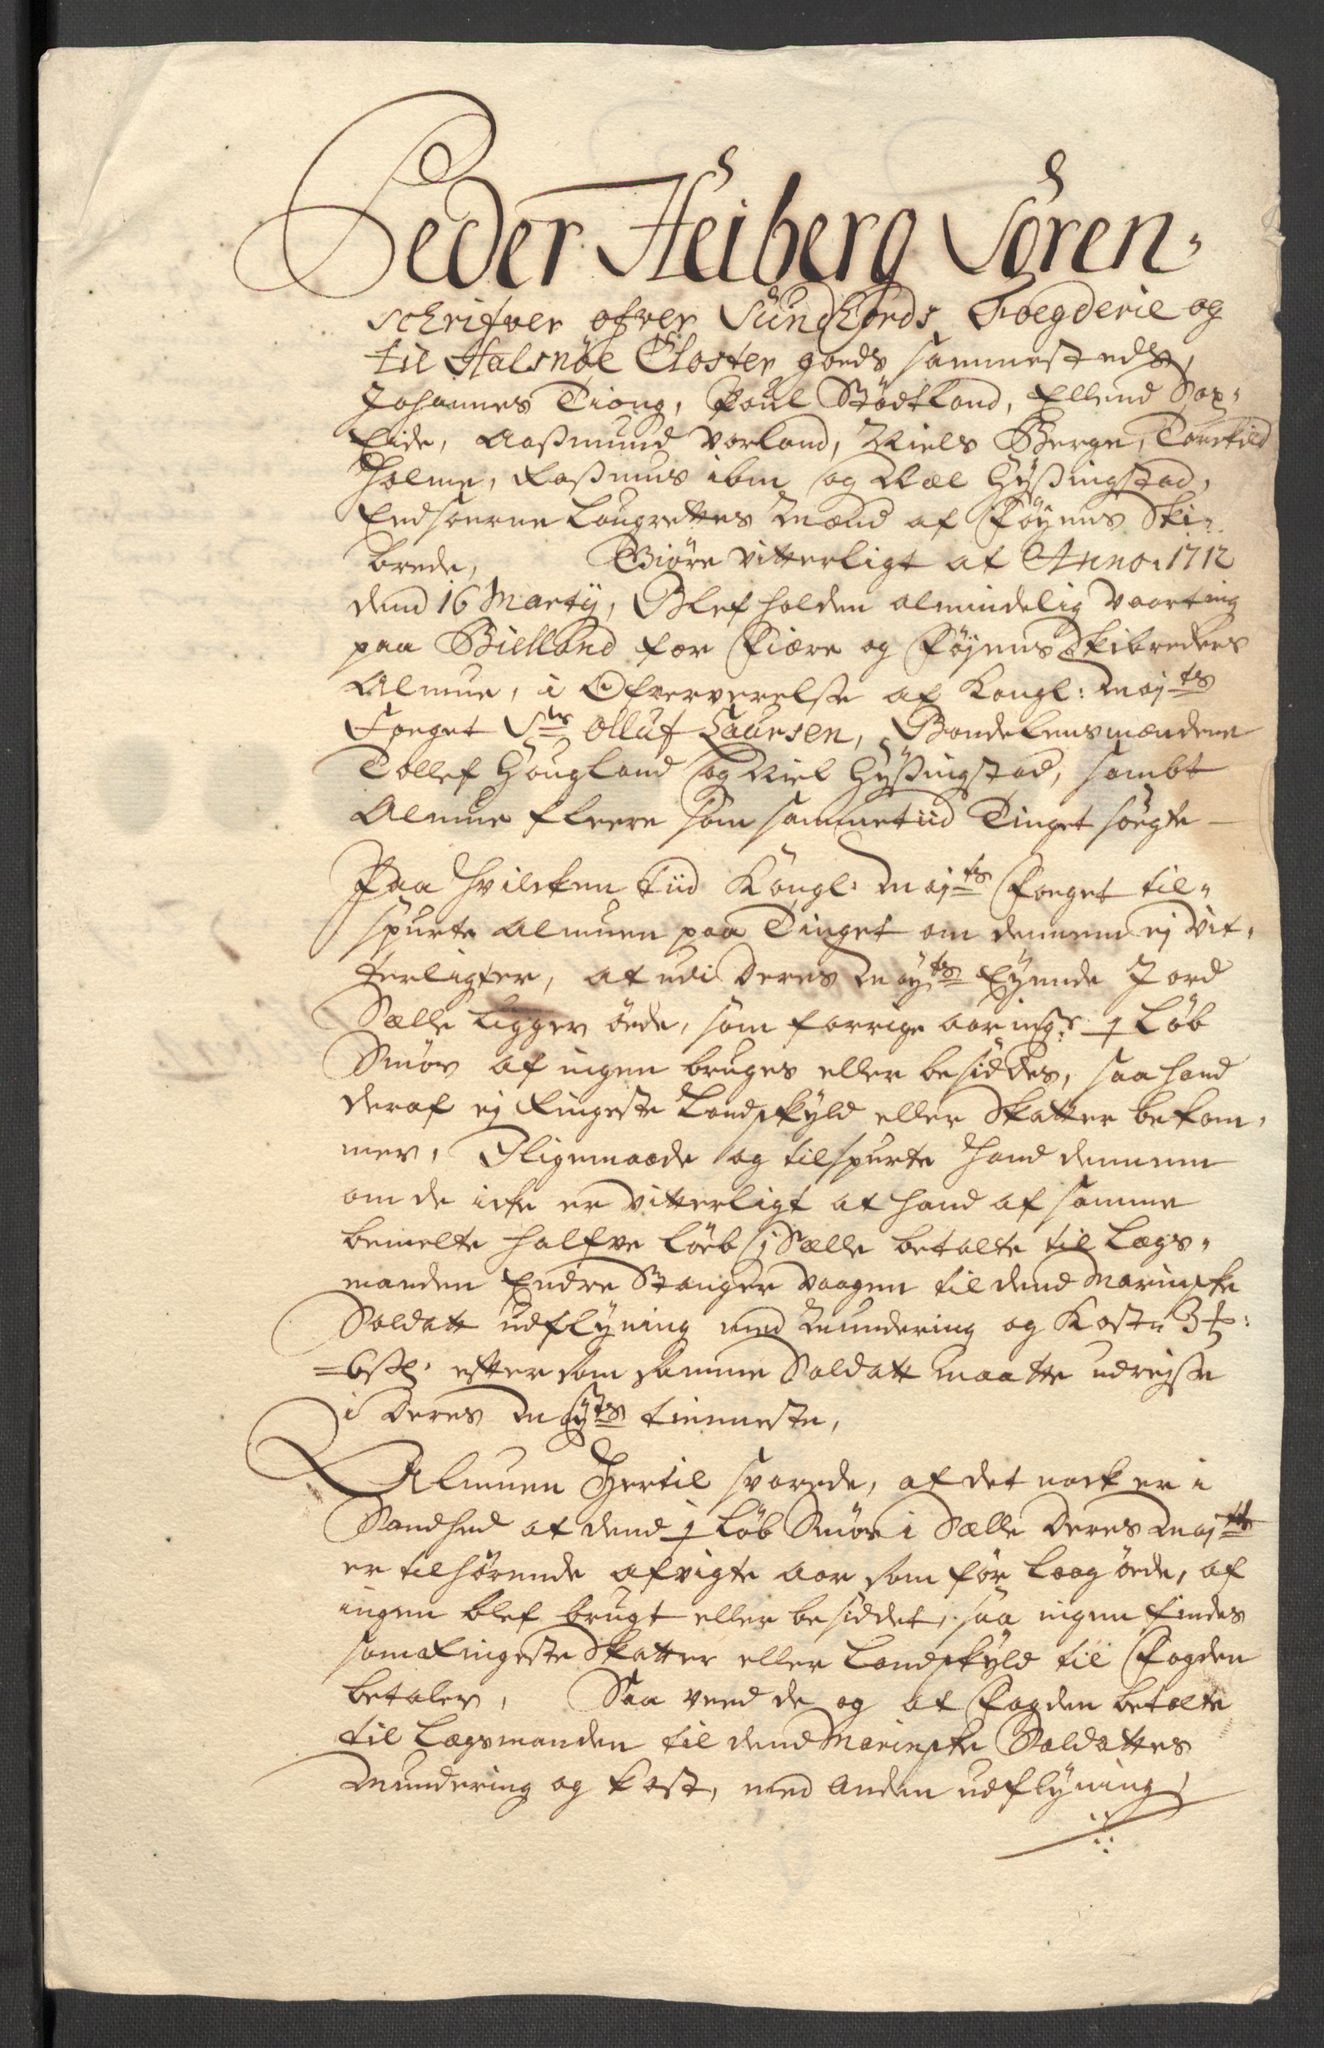 Peder Heiberg Soren-
schrifver ofver Sundhords Foegderie og
til Halsnøe Closter goeds sammesteds,
Johannes Tiong, Poul Stødtland, Ellend Sox-
Eide, Aasmund Vorland, Niels Berge, Torckild
Holme, Rasmus ibm og Niel Gyssingstad,
Eedsoerne Laugrettes Mænd af Føyens Ski-
brede, Giøre vitterligt at Anno 1712
dend 16 Marty, Blef holden almindelig Vaarting
paa Bielland for Fiære og Føyens Skibreders
Almue, i Ofververelse af Kongl: May:ts
Foeget Sr Olluf Laursen, Bondelensmændene
Tollef Hougland og Niel Gyssingstad, sambt
Almue fleere som sammetiid Tinget søgte
Paa hvilcken tiid Kongl: May:ts Foeget til-
spurte Almuen paa Tinget om dennem ej vit-
terligt er, at udi Deres May:ts Eyende Jord
Sælle ligger øede, som forrige aaringer ½ Løb
Smør af ingen bruges eller besiddes, saa hand
deraf ej ringeste Landskyld eller Skatter bekom-
mer, Iligemaade og tilspurte hand dennem
om de icke er vitterligt at hand af samme
bemelte halfve Løeb i Sælle betalte til Lægs-
manden Endre Stangervaagen til dend Marinske
Soldatt udflyning med Mundering og Kost 3
6 s: efter som samme Soldatt maatte udrejse
i Deres May:ts tienneste,
Almuen hertil svarede, at det nock er i
Sandhed at dend ½ Løb Smør i Sælle Deres May:tt
er tilhørende afvigte aar som før laag øede, af
ingen blef brugt eller besiddet, saa ingen findes
som ringeste Skatter eller Landskyld til Fogden
betaler, Saa veed de og at Fogden betalte
til Lægsmanden til dend Marinske Soldattes
Mundering og kost, med anden udflyning,